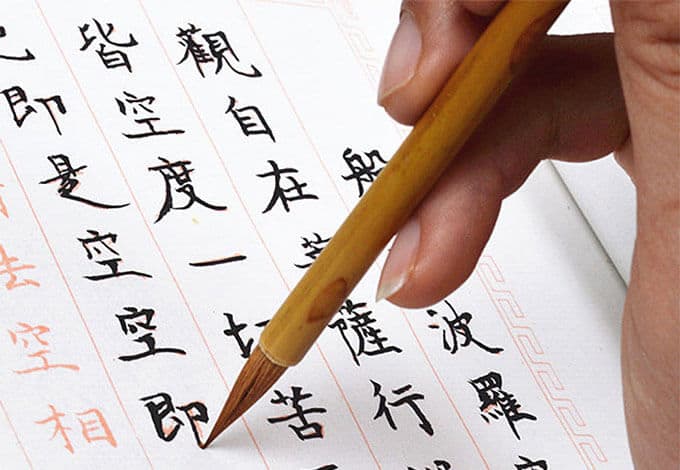 般波羅
觀自在薩行
皆空度一切苦
即是空空即
法空相